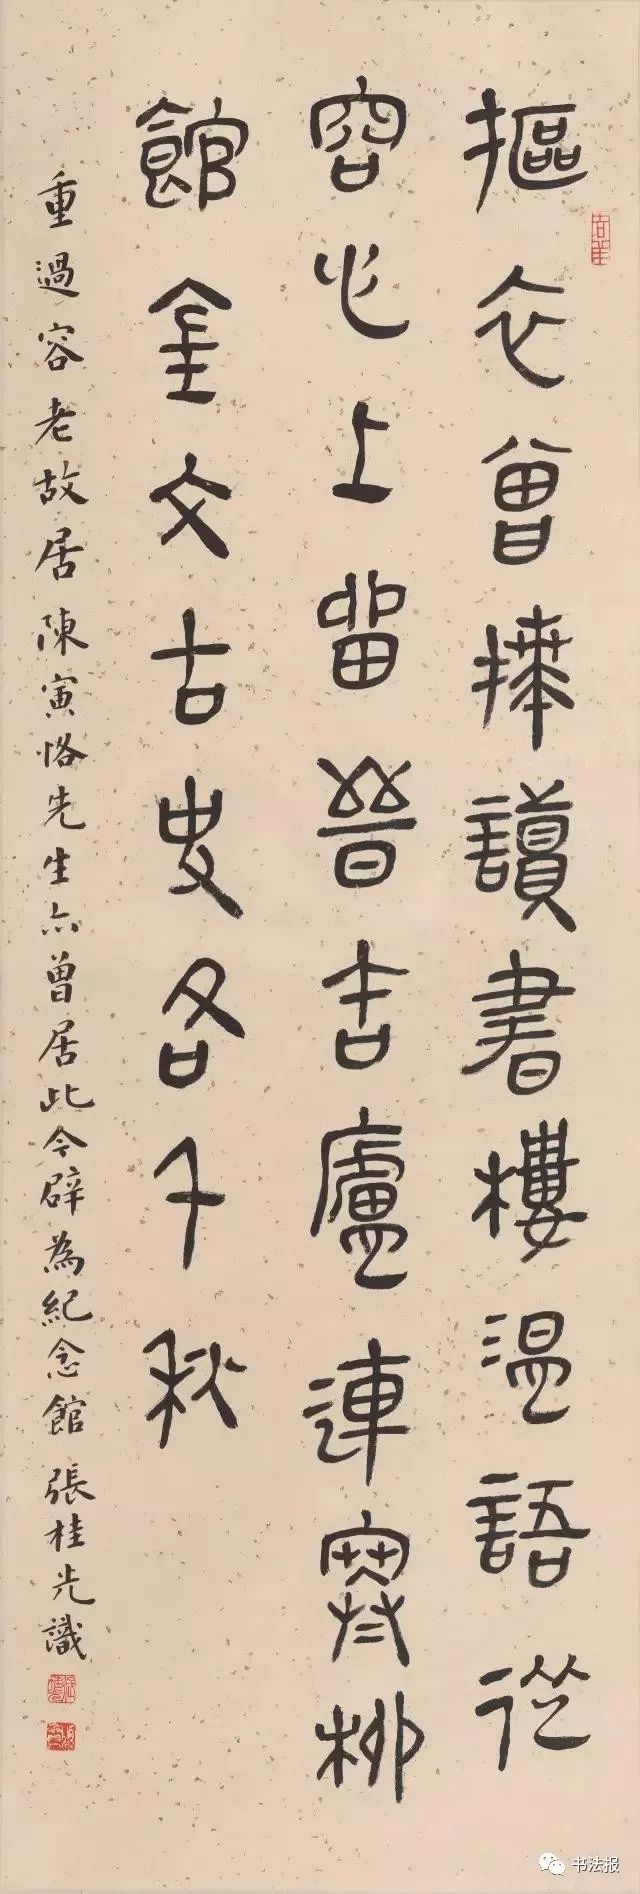 摳衣曾捧讀書樓溫語從
容心上留昔廬連寒柳
館金文古史各千秋
重過容老故居陳寅恪先生亦曾居此今辟為紀念館 張桂光識
书法报